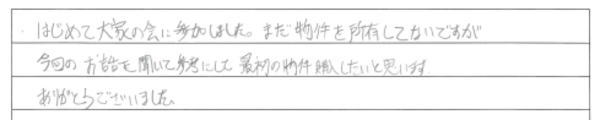 はじめて大家の会に参加しました。まだ物件を所有してないですが
今回のお話を聞いて参考にして最初の物件購入したいと思います.
ありがとうございました。